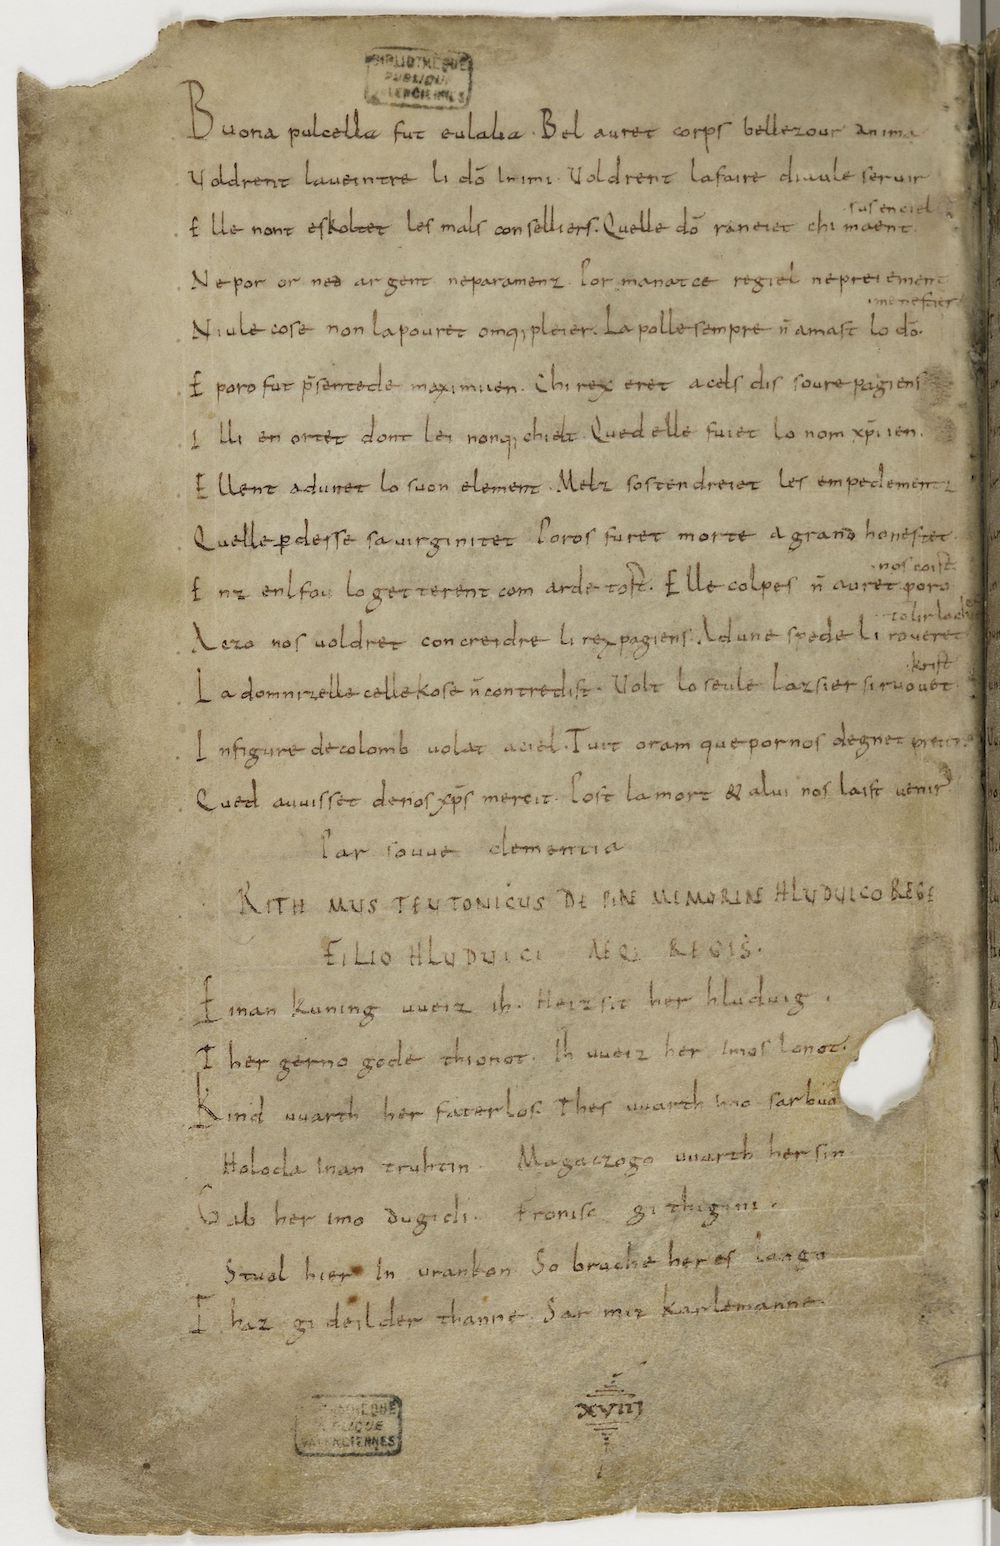 BIBLIOTHEQUE
PUBLIQUE
VALENCIENNES
Buona pulcella fut eulalia · Bel auret corps bellezour anima
Voldrent laveintre li dō Inimi · Voldrent lafaire diaule servir
sus en ciel
Elle nont eskoltet les mals conselliers · Quelle dō raneiet chi maent
Ne por or ned argent neparamenz · Por manatce regiel nepreiement
menestier
Niule cose non lapouret omq; pleier · La polle sempre n̄ amast lo dō
E poro fut p̄sentede maximiien · Chi rex eret acels dis soure pagiens
Illi en ortet dont lei nonq; chielt · Qued elle fuiet lo nom xp̄iien ·
Ellent adunet lo suon element · Melz sostendreiet les empedementz
Quelle ꝑdesse sa virginitet · Poros furet morte a grand honestet
nos coist
Enz enl fou lo getterent com arde tost · Elle colpes n̄ auret poro
tolir lo chief
Aczo nos voldret concreidre li rex pagiens · Ad une spede li roveret
krist
La domnizelle celle kose n̄ contredist · Volt lo seule lazsier si ruovet
Infigure de colomb volat aciel · Tuit oram que por nos degnet preier
Qued auuisset denos xp̄s mercit · Post la mort & a lui nos laist venir
Par souue clementia
RITHMUS TEUTONICUS DE PIAE MEMORIAE HLUDUICO REGE
FILIO HLUDUICI AEQ; REGIS ·
Einan kuning uueiz ih · Heizsit her hluduig ·
Ther gerno gode thionot · Ih uueiz her imos lonot ·
Kind uuarth her faterlos · Thes uuarth imo sar buo
Holoda inan truhtin · Magaczogo uuarth her sin
Gab her imo dugidi · Fronisc githigini ·
Stual hier In urankon · So bruche her es lango
Thaz gideilder thanne · Sar mit karlemanne ·
BIBLIOTHEQUE
PUBLIQUE
VALENCIENNES
XVIII